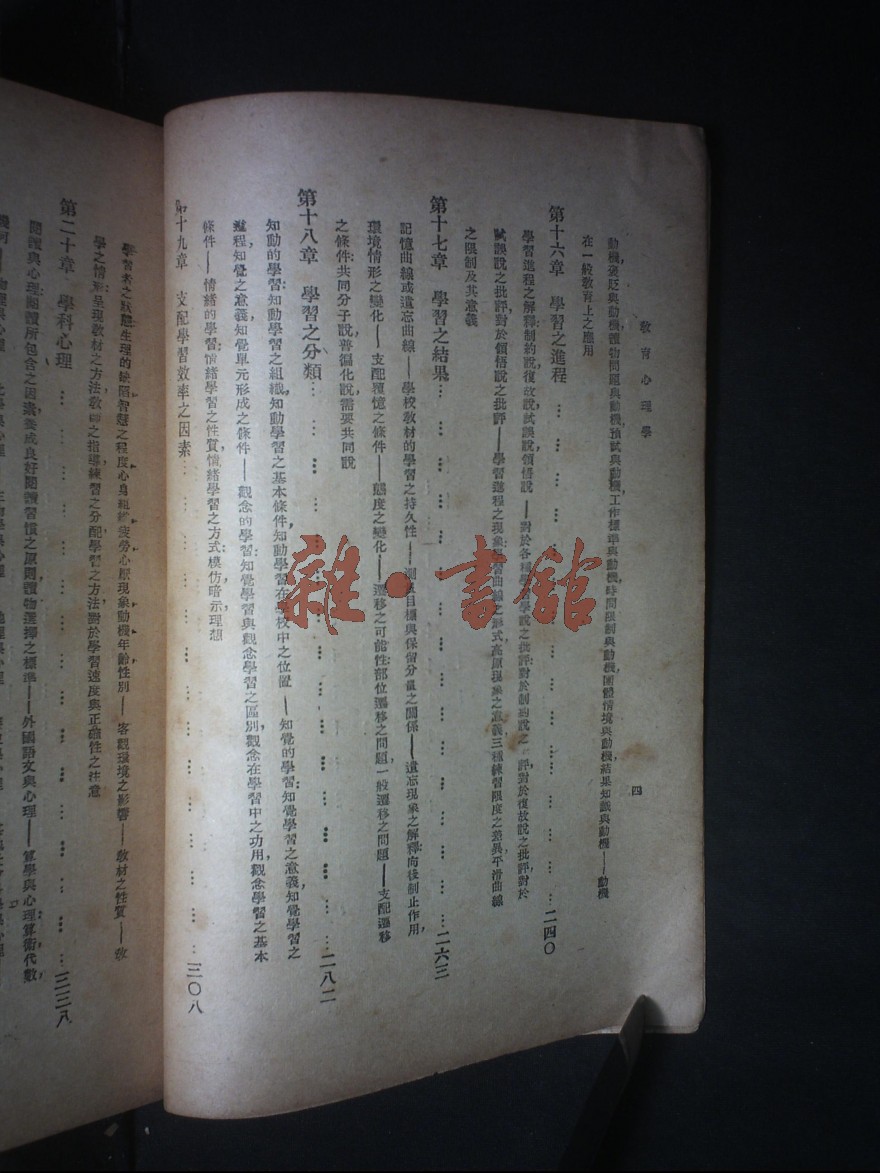 教育心理學
四
動機，褒貶與動機，讀物問題與動機，預試與動機，工作標準與動機，時間限制與動機，團體情境與動機，結果知識與動機——動機
在一般教育上之應用
第十六章　學習之進程……二四〇
學習進程之解釋：制約說，復故說，試誤說，領悟說——對於各種學習學說之批評：對於制約說之批評，對於復故說之批評，對於
試誤說之批評，對於領悟說之批評——學習進程之現象：學習曲線之形式，高原現象之意義，三種練習限度之差異，平滑曲線
之限制及其意義
第十七章　學習之結果……二六三
記憶曲線或遺忘曲線——學校教材的學習之持久性——測驗目標與保留分量之關係——遺忘現象之解釋：向後制止作用，
環境情形之變化——支配覆憶之條件——態度之變化——遷移之可能性：部位遷移之問題，一般遷移之問題——支配遷移
之條件：共同分子說，普徧化說，需要共同說
第十八章　學習之分類……二八二
知動的學習：知動學習之組織，知動學習之基本條件，知動學習在學校中之位置——知覺的學習：知覺學習之意義，知覺學習之
進程，知覺之意義，知覺單元形成之條件——觀念的學習：知覺學習與觀念學習之區別，觀念在學習中之功用，觀念學習之基本
條件——情緒的學習：情緒學習之性質，情緒學習之方式：模仿，暗示，理想
十九章　支配學習效率之因素……三〇八
學習者之狀態：生理的缺陷，智慧之程度，心身組織，疲勞，心原現象，動機，年齡，性別——客觀環境之影響——教材之性質——教
學之情形：呈現教材之方法，教師之指導，練習之分配，學習之方法，對於學習速度與正確性之注意
第二十章　學科心理……三三八
閱讀與心理：閱讀所包含之因素，養成良好閱讀習慣之原則，讀物選擇之標準——外國語文與心理——算學與心理：算術，代數，
幾何——物理與心理
雜·書館